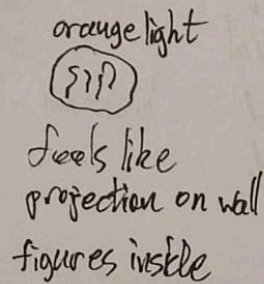 orange light
feels like
projection on wall
figures inside